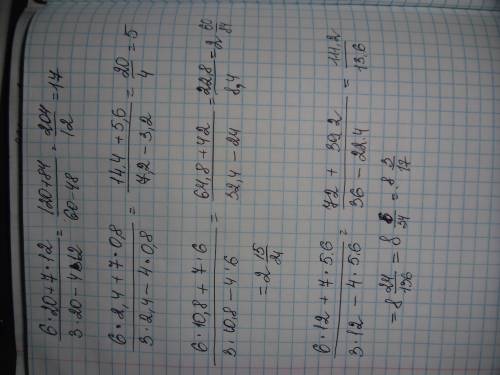 6·20+7·12 / 3·20-4·12 = 120+84 / 60-48 = 204 / 12 = 17
6·2,4+7·0,8 / 3·2,4-4·0,8 = 14,4+5,6 / 7,2-3,2 = 20 / 4 = 5
6·10,8+7·6 / 3·10,8-4·6 = 64,8+42 / 32,4-24 = 22,8 / 8,4 = 2 20/84
= 2 15/21
6·12+7·5.6 / 3·12-4·5.6 = 72+39.2 / 36-22.4 = 111,2 / 13.6
= 8 24/136 = 8 6/34 = 8 3/17